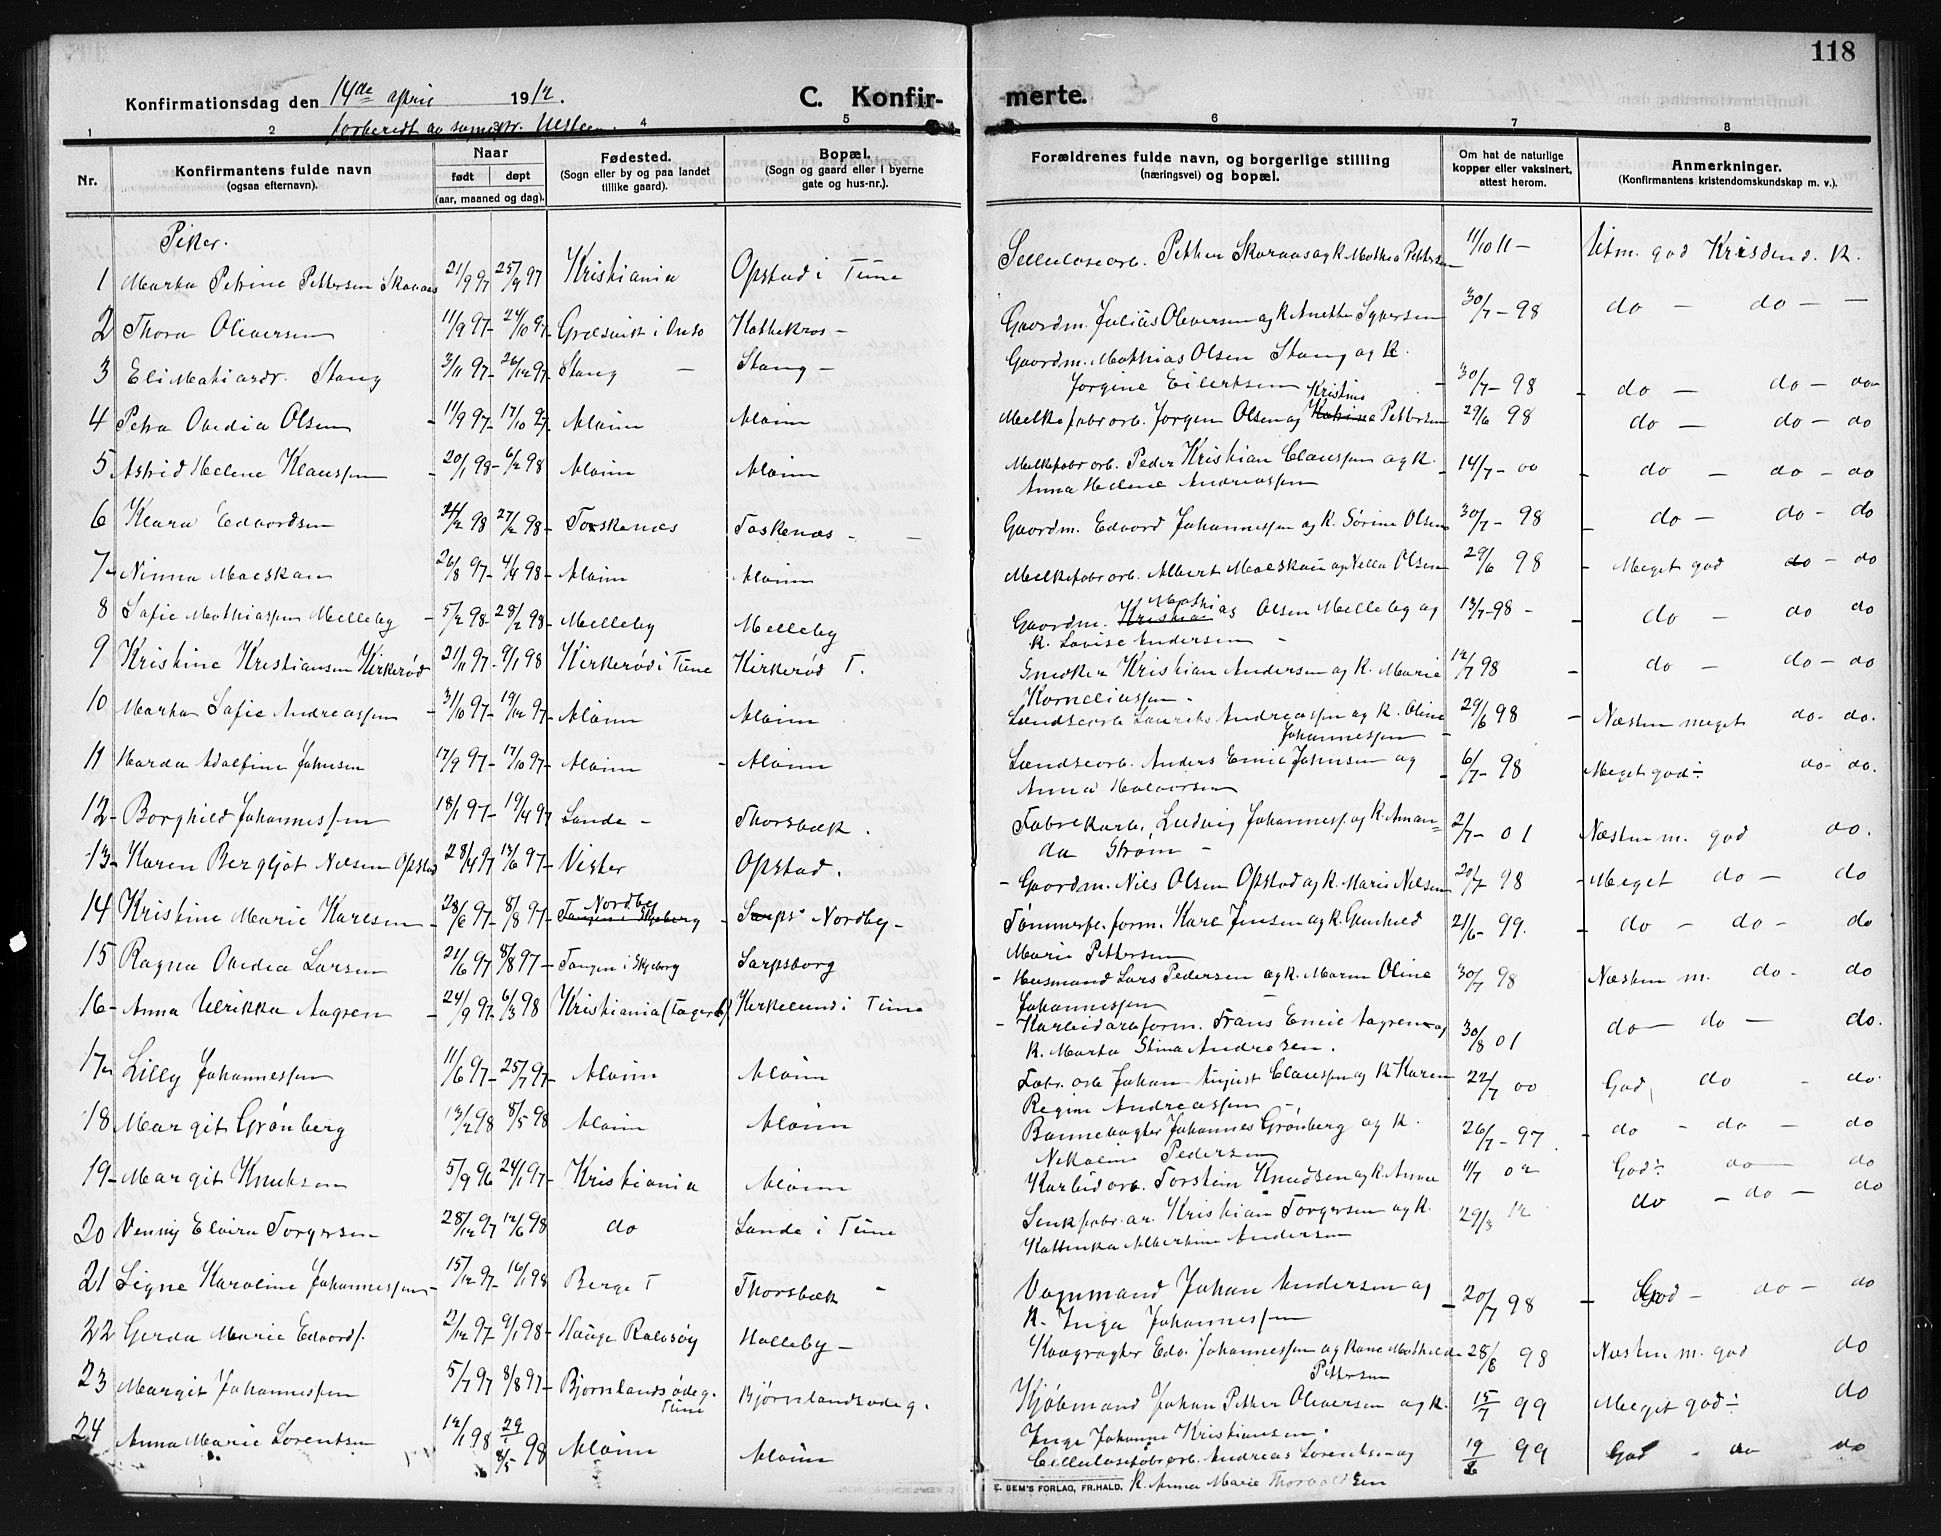 118
Konfirmationsdag den 14de april 1912.
C. Konfirmerte.
1 2 3 4 5 6 7 8
Nr.
Konfirmantens fulde navn (ogsaa efternavn).
Naar født døpt (aar, maaned og dag).
Fødested. (Sogn eller by og paa landet tillike gaard).
Bopæl. (Sogn og gaard eller i byerne gate og hus-nr.).
Forældrenes fulde navn, og borgerlige stilling (næringsvei) og bopæl.
Om hat de naturlige kopper eller vaksinert, attest herom.
Anmerkninger. (Konfirmantens kristendomskundskap m. v.).
Piker.
1 Marta Petrine Pettersen Skaraas 21/9 97 25/9 97 Kristiania Opstad i Tune Petter Skaraas og k. Mathea Pettersen 11/10 11 - Utm. god Kristend. K.
2 Thora Oliversen 11/9 97 - 24/10 97 - Græsvik i Onsø Gaardm. Julius Oliversen og k. Anette Syversen 30/7 - 98 do - do -
3 Stang 3/11 97 - 26/12 97 - Stang - Stang - Gaardm. Mathias Olsen Stang og k. Jørgine Eilertsen 30/7 - 98 do - do - do
4 Petra Ovedia Olsen 11/9 97 - 17/10 97 - Alvim Alvim Melkefabr arb. Jørgen Olsen og Kristine Pettersen 29/6 98 do - do - do
5 Astrid Helene Klaussen 20/1 98 - 6/2 98 - Alvim Alvim Melkefabr arb. Peder Kristian Claussen og k. Anna Helene Andreassen 14/7 - 00 do - do - do
6 Klara Edvardsen 27/2 98 - Torskenæs Taskenæs - Gaardm. Edvard Johannessen og k. Sørine Olsen 30/7 - 98 do - do - do
7 Ninna Moeskau 26/8 97 - 4/4 98 - Alvim Alvim Melkefabr arb. Albert Moeskau og Nella Olsen 29/6 98 - Meget god do - do
8 Sofie Mathiassen Melleby 5/2 98 - 28/2 98 - Melleby Melleby Gaardm. Mathias Olsen Melleby og k. Lovise Andersen - 13/7 - 98 - do do do
9 Kristine Kristiansen Kirkerød 21/11 97 - 9/1 98 Kirkerød i Tune Kirkerød T. Snedker Kristian Andersen og k. Marie Korneliussen - 12/7 98 do - do - do
10 Marta Sofie Andreassen - 31/10 97 - 19/12 97 - Alvim Alvim Landsearb Laurits Andreassen og k. Oline Johannessen - 29/6 98 - Næsten meget do - do.
11 Harda Adolfine Johnsen 17/9 97 - 17/10 97 - Alvim - Alvim Landsearb. Anders Emil Johnsen og Anna Halvorsen 6/7 - 98 Meget god ÷ do - do.
12 - Borghild Johannessen 18/1 97 - 19/4 97 Lande - Thorsbæk. Fabrikarb. Ludvig Johanness. og k. Amanda Strøm - 2/7 - 01 Næsten m. god do.
13 - Karen Bergljot Nilsen Opstad 28/4 97 13/6 97 - Vister Opstad. - Gaardm. Nils Olsen Opstad og k. Marie Nilsen 20/7 - 98 - Meget do - do
14 Kristine Marie Karlsen 28/6 97 - 8/8 97 - Nordby Tangen i Skjeberg - Sarps Nordby - Tømmerfl. form. Karl Jensen og k. Gunhild Marie Pettersen 21/6 - 99. do - do - do
15 Ragna Ovedia Larsen 21/6 97 8/8 97 - Tangen i Skjeberg Sarpsborg - Husmand Lars Pedersen og k. Maren Oline Johannessen 30/7 98 Næsten m. do - do
16 - Anna Ulrikka Aagren 24/9 97 - 6/3 98 Kristiania Kirkelund i Tune - Karbidarb form. Frans Emil Aagren og k. Marta Stina Andresen. 30/8 01 do - do - do.
17 - Lilly Johannessen 11/6 97 - 25/7 97 - Alvim Alvim Fabr. arb Johan August Claussen og k Karen Regine Andreassen - 22/7 00 God do - do.
18 Margit Grønberg 13/2 98 8/5 98 Alvim Alvim Banevogter Johannes Grønberg og k. Nikoline Pedersen 26/7 - 97. - do - do - do
19 - Margit Knutsen 5/9 96 24/1 97 - Kristiania Alvim Karbid arb. Torstein Knudsen og k. Anna 11/7 02 God ÷ do - do
20 Venny Elvira Torgersen 28/12 97 12/6 98 do Lande i Tune Kristian Torgersen og k. Albertine Andersen 29/3 12 do - do - do
21 Signe Karoline Johannessen - 15/12 97 - 16/1 98 Berge T Thorsbæk - Vognmand Johan Andersen og k. Inga Johannessen - 20/7 98 - God - do - do
22 Gerda Marie Edvards. 2/12 97 - 9/1 98 - Hauge Rolvsøy Halleby - Edv. Johannessen og Kone Mathilde Pettersen 28/8 98 Næsten m. god do
23 Margit Johannessen 5/7 97 8/8 97 - Bjørnlandsødeg. Tune Bjørnlandsødeg. Kjøbmand Johan Petter Oliversen og k. Inga Johanne Kristiansen. 15/7 99 Meget god ÷ do
24 Anna Marie Lorentsen 12/1 98 8/5 98 Alvim Alvim Cellulosefabr arb. Andreas Lorentsen og k. Anna Marie Thorvaldsen 19/8 99 God - do do
E. SEM'S FORLAG, FR.HALD.